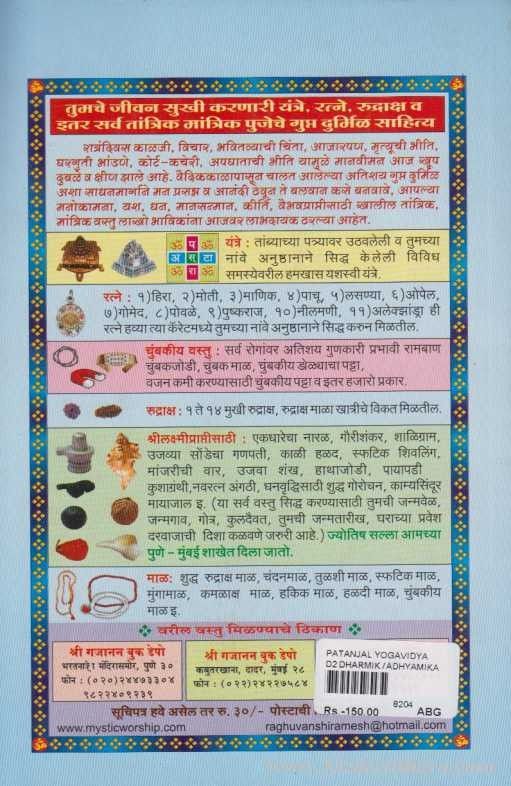 तुमचे जीवन सुखी करणारी यंत्रे, रत्ने, रुद्राक्ष व
इतर सर्व तांत्रिक मांत्रिक पुजेचे गुप्त दुर्मिळ साहित्य
रात्रंदिवस काळजी, विचार, भवितव्याची चिंता, आजारपण, मृत्यूची भीति,
घरगुती भांडणे, कोर्ट-कचेरी, अपघाताची भीति यामुळे मानवीमन आज खुप
दुबळे व क्षीण झाले आहे. वैदिककाळापासून चालत आलेल्या अतिशय गुप्त दुर्मिळ
अशा साधनामार्गाने मन प्रसन्न व आनंदी ठेवुन ते बलवान कसे बनवावे, आपल्या
मनोकामना, यश, धन, मानसन्मान, कीर्ति, वैभवप्राप्तीसाठी खालील तांत्रिक,
मांत्रिक वस्तु लाखो भाविकांना आजवर लाभदायक ठरल्या आहेत.
यंत्रे : तांब्याच्या पत्र्यावर उठवलेली व तुमच्या
नांवे अनुष्ठानाने सिद्ध केलेली विविध
समस्येवरील हमखास यशस्वी यंत्रे.
ॐ प ॐ
अ स् टा
ॐ रा ॐ
रत्ने : १)हिरा, २)मोती, ३)माणिक, ४)पाचू, ५)लसण्या, ६)ओपेल,
७)गोमेद, ८)पोवळे, ९)पुष्कराज, १०)नीलमणी, ११)अलेक्झांड्रा ही
रत्ने हव्या त्या कॅरेटमध्ये तुमच्या नांवे अनुष्ठानाने सिद्ध करुन मिळतील.
चुंबकीय वस्तु : सर्व रोगांवर अतिशय गुणकारी प्रभावी रामबाण
चुंबकजोडी, चुंबक माळ, चुंबकीय डोळ्याचा पट्टा,
वजन कमी करण्यासाठी चुंबकीय पट्टा व इतर हजारो प्रकार.
रुद्राक्ष : १ ते १४ मुखी रुद्राक्ष, रुद्राक्ष माळा खात्रीचे विकत मिळतील.
श्रीलक्ष्मीप्राप्तीसाठी : एकधारेचा नारळ, गौरीशंकर, शाळिग्राम,
उजव्या सोंडेचा गणपती, काळी हळद, स्फटिक शिवलिंग,
मांजरीची वार, उजवा शंख, हाथाजोडी, पायापडी
कुशाग्रंथी,नवरत्न अंगठी, धनवृद्धिसाठी शुद्ध गोरोचन, काम्यसिंदूर
मायाजाल इ. (या सर्व वस्तु सिद्ध करण्यासाठी तुमची जन्मवेळ,
जन्मगाव, गोत्र, कुलदैवत, तुमची जन्मतारीख, घराच्या प्रवेश
दरवाजाची दिशा कळवणे जरुरी आहे.) ज्योतिष सल्ला आमच्या
पुणे – मुंबई शाखेत दिला जातो.
माळ: शुद्ध रुद्राक्ष माळ, चंदनमाळ, तुळशी माळ, स्फटिक माळ,
मुंगामाळ, कमळाक्ष माळ, हकिक माळ, हळदी माळ, चुंबकीय
माळ इ.
वरील वस्तु मिळण्याचे ठिकाण
श्री गजानन बुक डेपो
भरतनाट्य मंदिरासमोर, पुणे ३०
फोन : (०२०)२४४७३३०४
९८२२४०९२३९
श्री गजानन बुक डेपो
कबुतरखाना, दादर, मुंबई २८
फोन : (०२२)२४२२७५८४
PATANJAL YOGAVIDYA
D2 DHARMIK /ADHYAMIKA
8204
Rs -150.00 ABG
सूचिपत्र हवे असेल तर रु. ३०/– पोस्टाची
www.mysticworship.com raghuvanshiramesh@hotmail.com